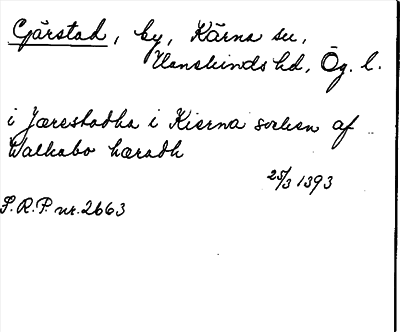 Gärstad, by, Kärna sn,
Hanekinds hd, Ög. l.
i Jærestadha i Kierna sokn af
Walkabo hæradh
25/3 1393
S.R.P. nr. 2663